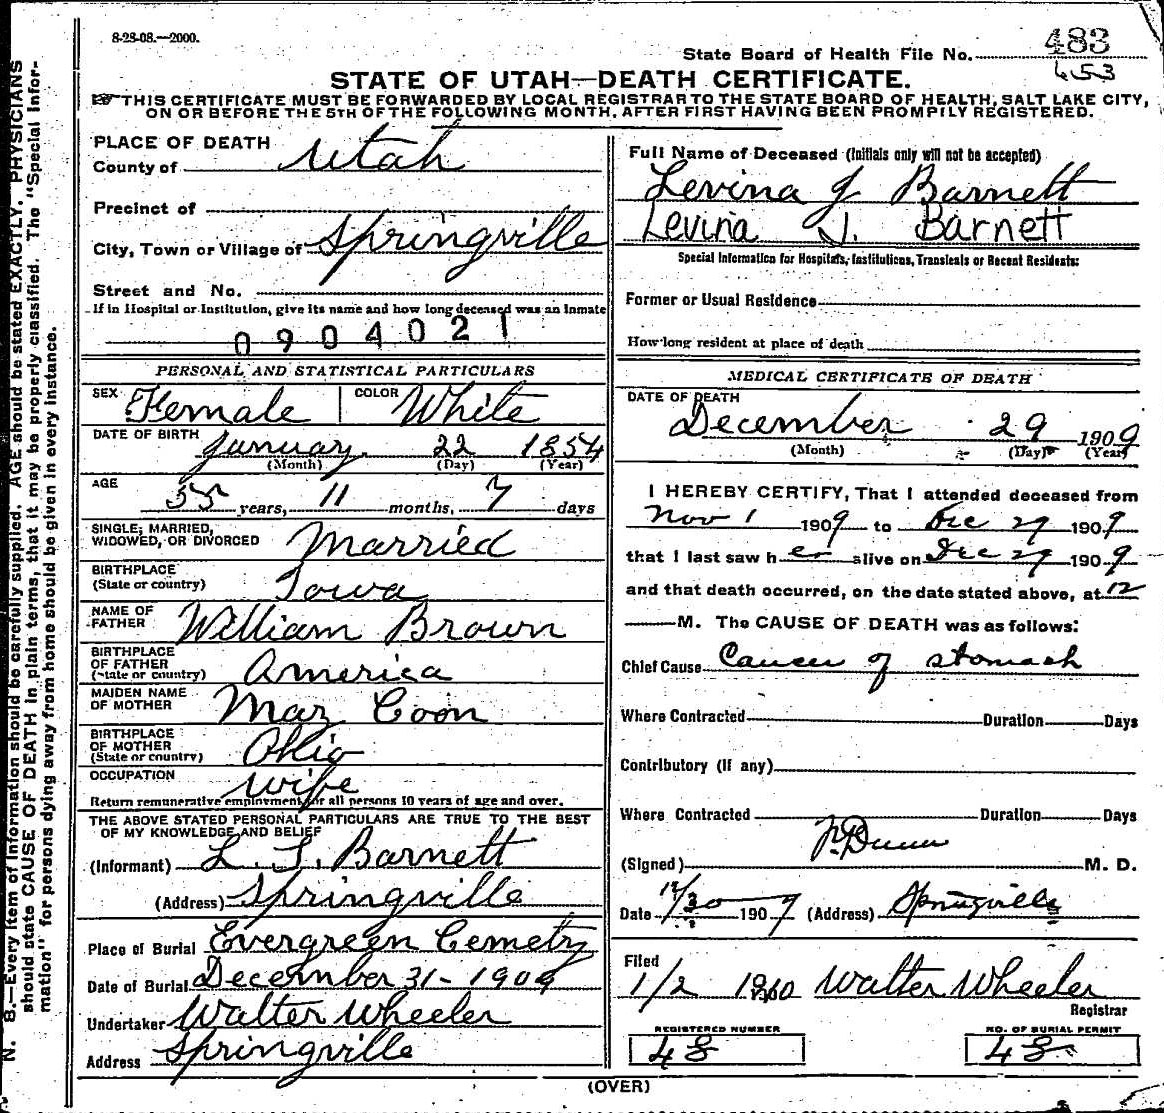 8-28-08.—2000.
State Board of Health File No. 483
653
STATE OF UTAH—DEATH CERTIFICATE.
THIS CERTIFICATE MUST BE FORWARDED BY LOCAL REGISTRAR TO THE STATE BOARD OF HEALTH, SALT LAKE CITY,
ON OR BEFORE THE 5TH OF THE FOLLOWING MONTH, AFTER FIRST HAVING BEEN PROMPILY REGISTERED.
N. B.—Every item of information should be carefully supplied. AGE should be stated EXACTLY. PHYSICIANS
should state CAUSE OF DEATH in plain terms, that it may be properly classified. The "Special Infor-
mation" for persons dying away from home should be given in every instance.
PLACE OF DEATH
County of Utah
Precinct of
City, Town or Village of Springville
Street and No.
If in Hospital or Institution, give its name and how long deceased was an Inmate
0904021
PERSONAL AND STATISTICAL PARTICULARS
SEX Female COLOR White
DATE OF BIRTH January 22 1854
(Month) (Day) (Year)
AGE 55 years, 11 months, 7 days
SINGLE, MARRIED,
WIDOWED, OR DIVORCED Married
BIRTHPLACE
(State or country) Iowa
NAME OF
FATHER William Brown
BIRTHPLACE
OF FATHER
(State or country) America
MAIDEN NAME
OF MOTHER Mary Coon
BIRTHPLACE
OF MOTHER
(State or country) Ohio
OCCUPATION Wife
Return remunerative employment for all persons 10 years of age and over.
THE ABOVE STATED PERSONAL PARTICULARS ARE TRUE TO THE BEST
OF MY KNOWLEDGE AND BELIEF
(Informant) L. J. Barnett
(Address) Springville
Place of Burial Evergreen Cemetry
Date of Burial December 31-1909
Undertaker Walter Wheeler
Address Springville
Full Name of Deceased (Initials only will not be accepted)
Levina J Barnett
Levina J. Barnett
Special Information for Hospitals, Institutions, Transients or Recent Residents:
Former or Usual Residence
How long resident at place of death
MEDICAL CERTIFICATE OF DEATH
DATE OF DEATH
December 29 1909
(Month) (Day) (Year)
I HEREBY CERTIFY, That I attended deceased from
Nov 1 1909 to Dec 29 1909
that I last saw her alive on Dec 29 1909
and that death occurred, on the date stated above, at 12
M. The CAUSE OF DEATH was as follows:
Chief Cause Cancer of stomach
Where Contracted Duration Days
Contributory (if any)
Where Contracted Duration Days
(Signed) Dunn M. D.
Date 12/30 1909 (Address) Springville
Filed
1/2 1910 Walter Wheeler
Registrar
REGISTERED NUMBER
48
NO. OF BURIAL PERMIT
48
(OVER)